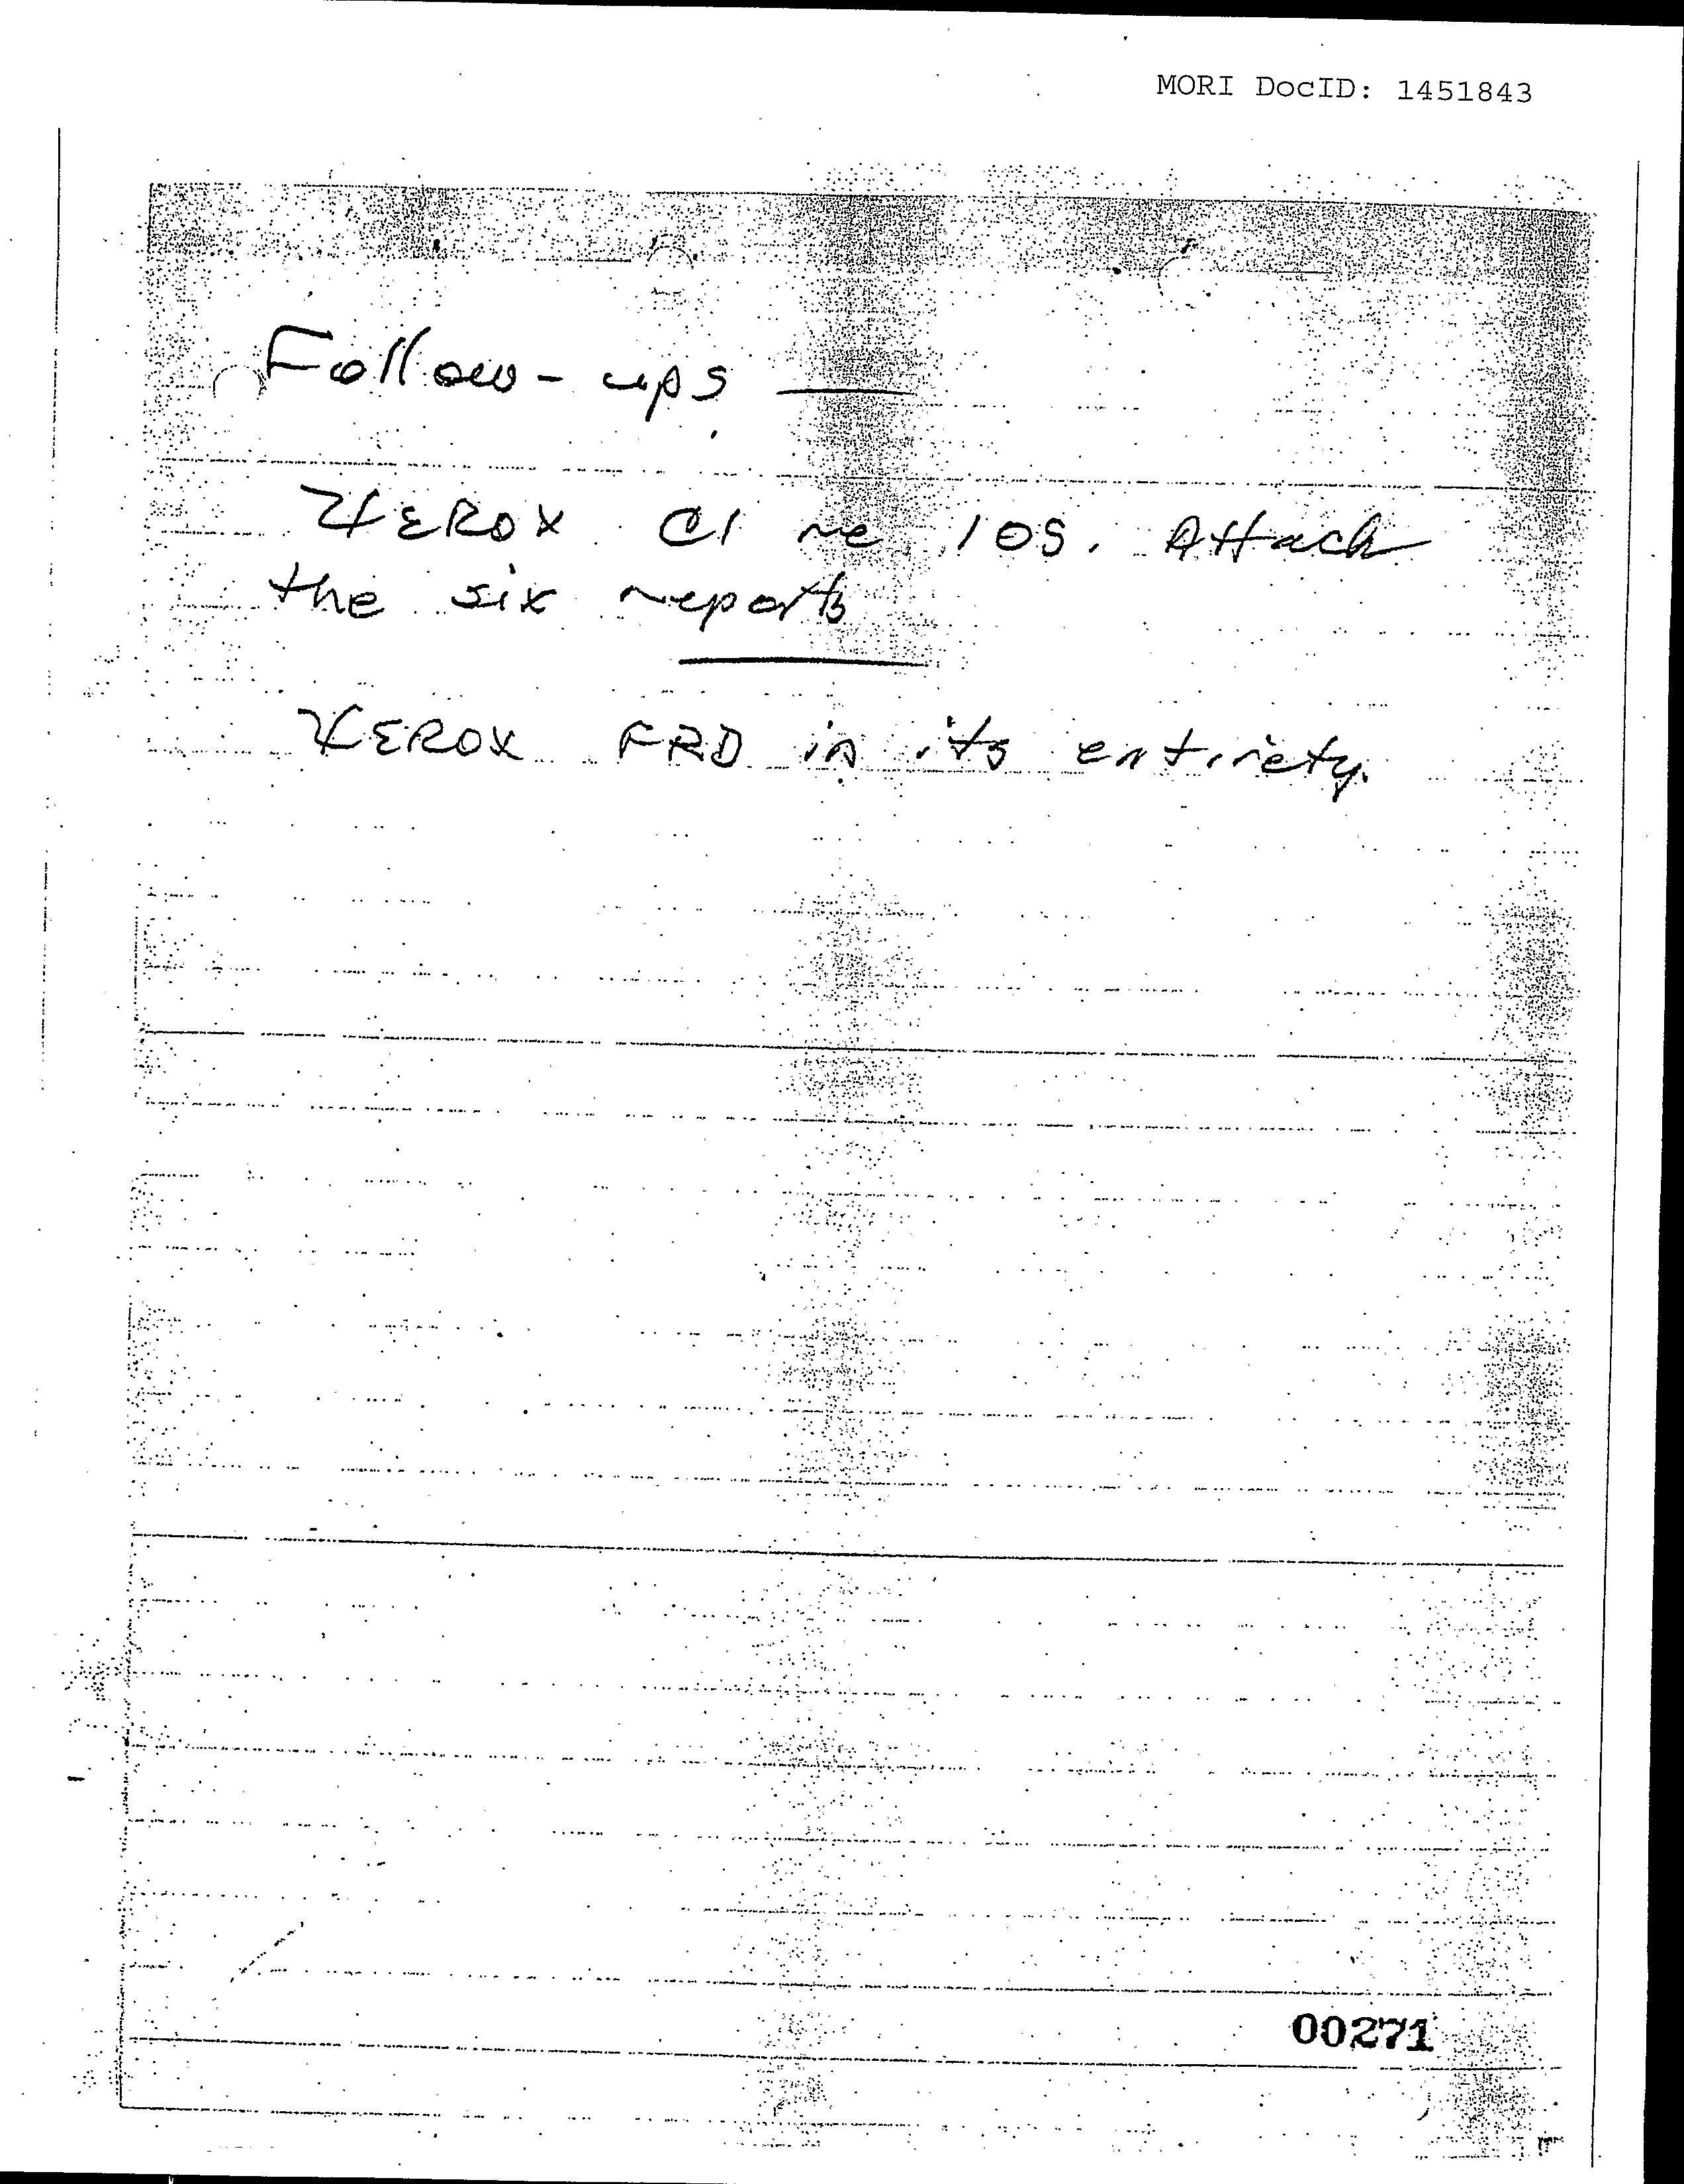 MORI DocID: 1451843
Follow-ups —
XEROX CI re IOS. Attach
the six reports
XEROX FRD in its entirety.
00271